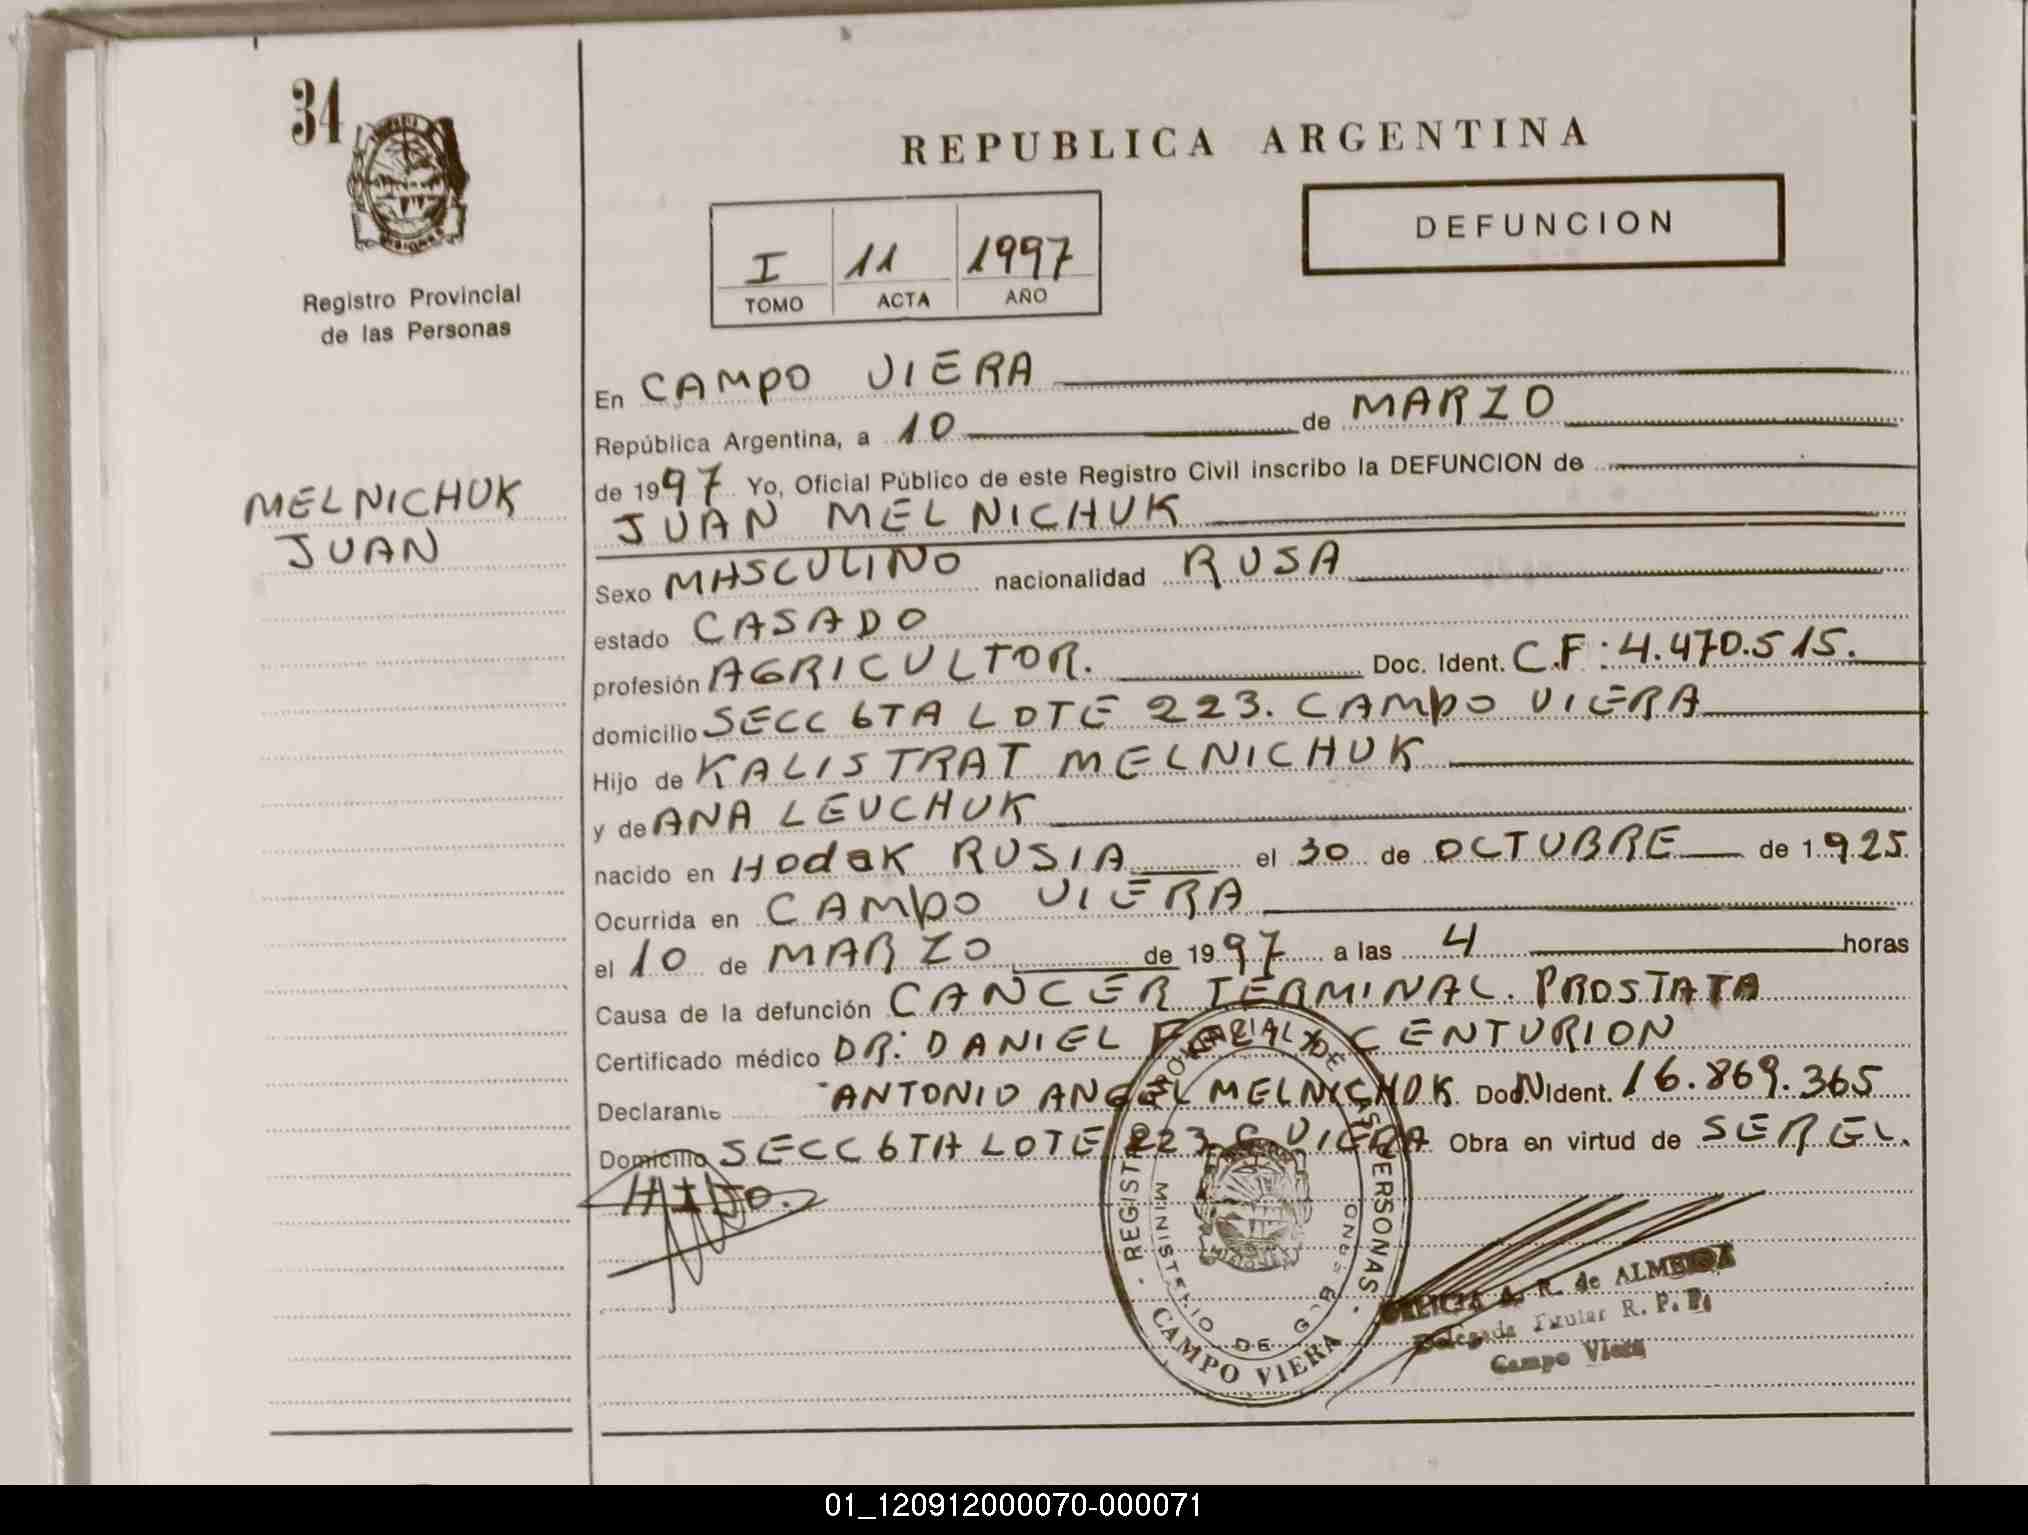 34
REPUBLICA ARGENTINA
DEFUNCION
I 11 1997
TOMO ACTA AÑO
Registro Provincial
de las Personas
MELNICHUK
JUAN
En CAMPO VIERA
República Argentina, a 10 de MARZO
de 1997 Yo, Oficial Público de este Registro Civil inscribo la DEFUNCION de
JUAN MELNICHUK
Sexo MASCULINO nacionalidad RUSA
estado CASADO
profesión AGRICULTOR. Doc. Ident. C.F: 4.470.515.
domicilio SECC 6TA LOTE 223. CAMPO VIERA
Hijo de KALISTRAT MELNICHUK
y de ANA LEVCHUK
nacido en HODAK RUSIA el 30 de OCTUBRE de 1.925.
Ocurrida en CAMPO VIERA
el 10 de MARZO de 1997 a las 4 horas
Causa de la defunción CANCER TERMINAL. PROSTATA
Certificado médico DR: DANIEL CENTURION
Declarante ANTONIO ANGEL MELNICHUK Doc. Ident. 16.869.365
Domicilio SECC 6TA LOTE 223 C VIERA Obra en virtud de SER EL.
HIJO.
REGISTRO PROVINCIAL DE LAS PERSONAS
MINISTERIO DE GOB
MISIONES
CAMPO VIERA
R. de ALMEIDA
Delegada Titular R. P. P.
Campo Viera
01_120912000070-000071